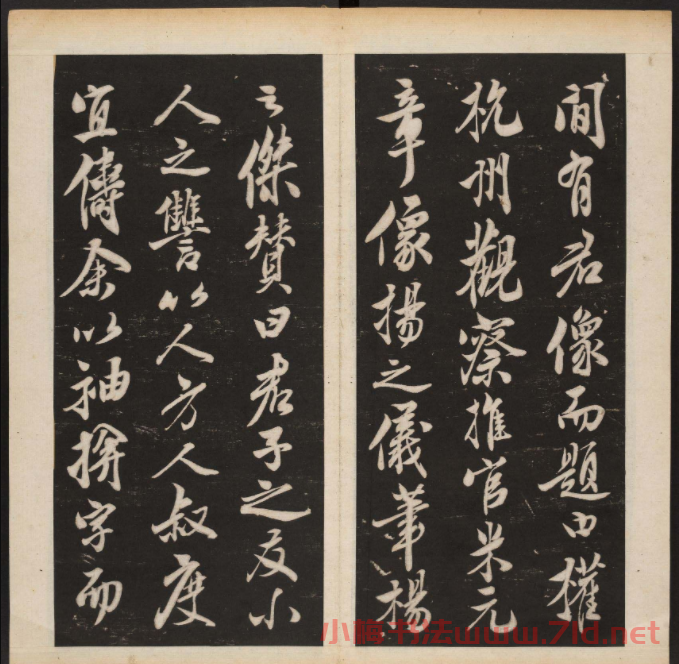 間有君像而題曰權
杭州觀察推官米元
章像揚之儀華楊
之傑贊曰君子之友小
人之讐以人方人叔度
宜儔余以袖捹字而
小梅书法www.7ld.net